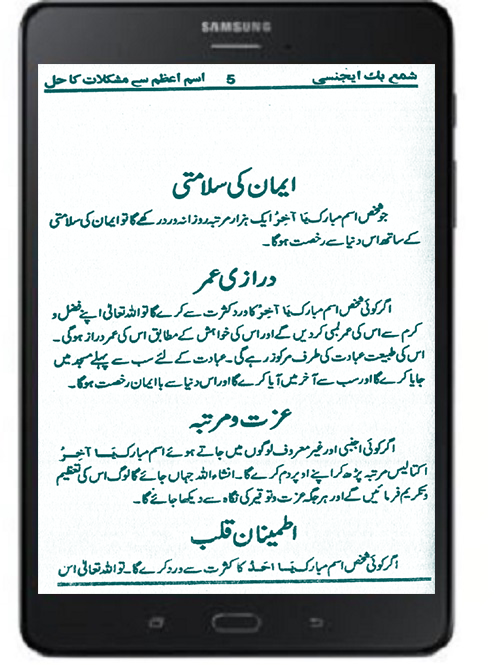 SAMSUNG
شمع بک ایجنسی 5 اسم اعظم سے مشکلات کا حل
ایمان کی سلامتی
جو شخص اسم مبارک یَا آخِرُ ایک ہزار مرتبہ روزانہ ورد رکھے گا تو ایمان کی سلامتی
کے ساتھ اس دنیا سے رخصت ہوگا۔
درازی عمر
اگر کوئی شخص اسم مبارک یَا آخِرُ کا ورد کثرت سے کرے گا تو اللہ تعالیٰ اپنے فضل و
کرم سے اس کی عمر لمبی کر دیں گے اور اس کی خواہش کے مطابق اس کی عمر دراز ہوگی۔
اس کی طبیعت عبادت کی طرف مرکوز رہے گی۔ عبادت کے لئے سب سے پہلے مسجد میں
جایا کرے گا اور سب سے آخر میں آیا کرے گا اور اس دنیا سے با ایمان رخصت ہوگا۔
عزت و مرتبہ
اگر کوئی اجنبی اور غیر معروف لوگوں میں جاتے ہوئے اسم مبارک یَا آخِرُ
اکتالیس مرتبہ پڑھ کر اپنے اوپر دم کرے گا۔ انشاء اللہ جہاں جائے گا لوگ اس کی تعظیم
و تکریم فرمائیں گے اور ہر جگہ عزت و توقیر کی نگاہ سے دیکھا جائے گا۔
اطمینان قلب
اگر کوئی شخص اسم مبارک یَا اَحَدُ کا کثرت سے ورد کرے گا۔ تو اللہ تعالیٰ اس